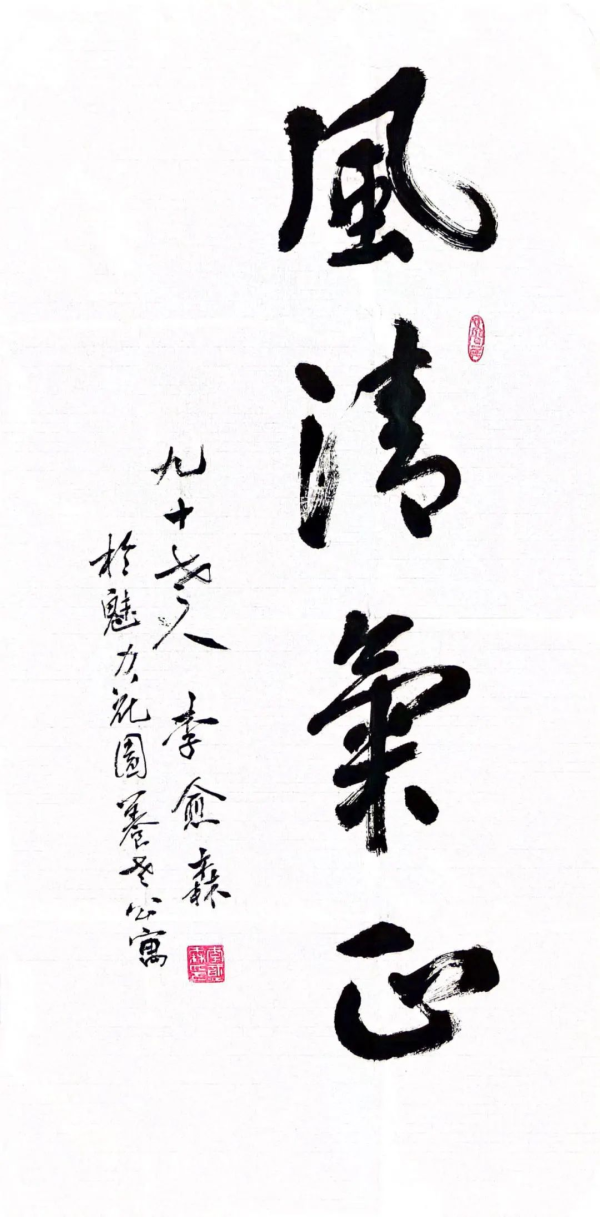 風清氣正
九十老人 李愈森
於魅力花園養老公寓